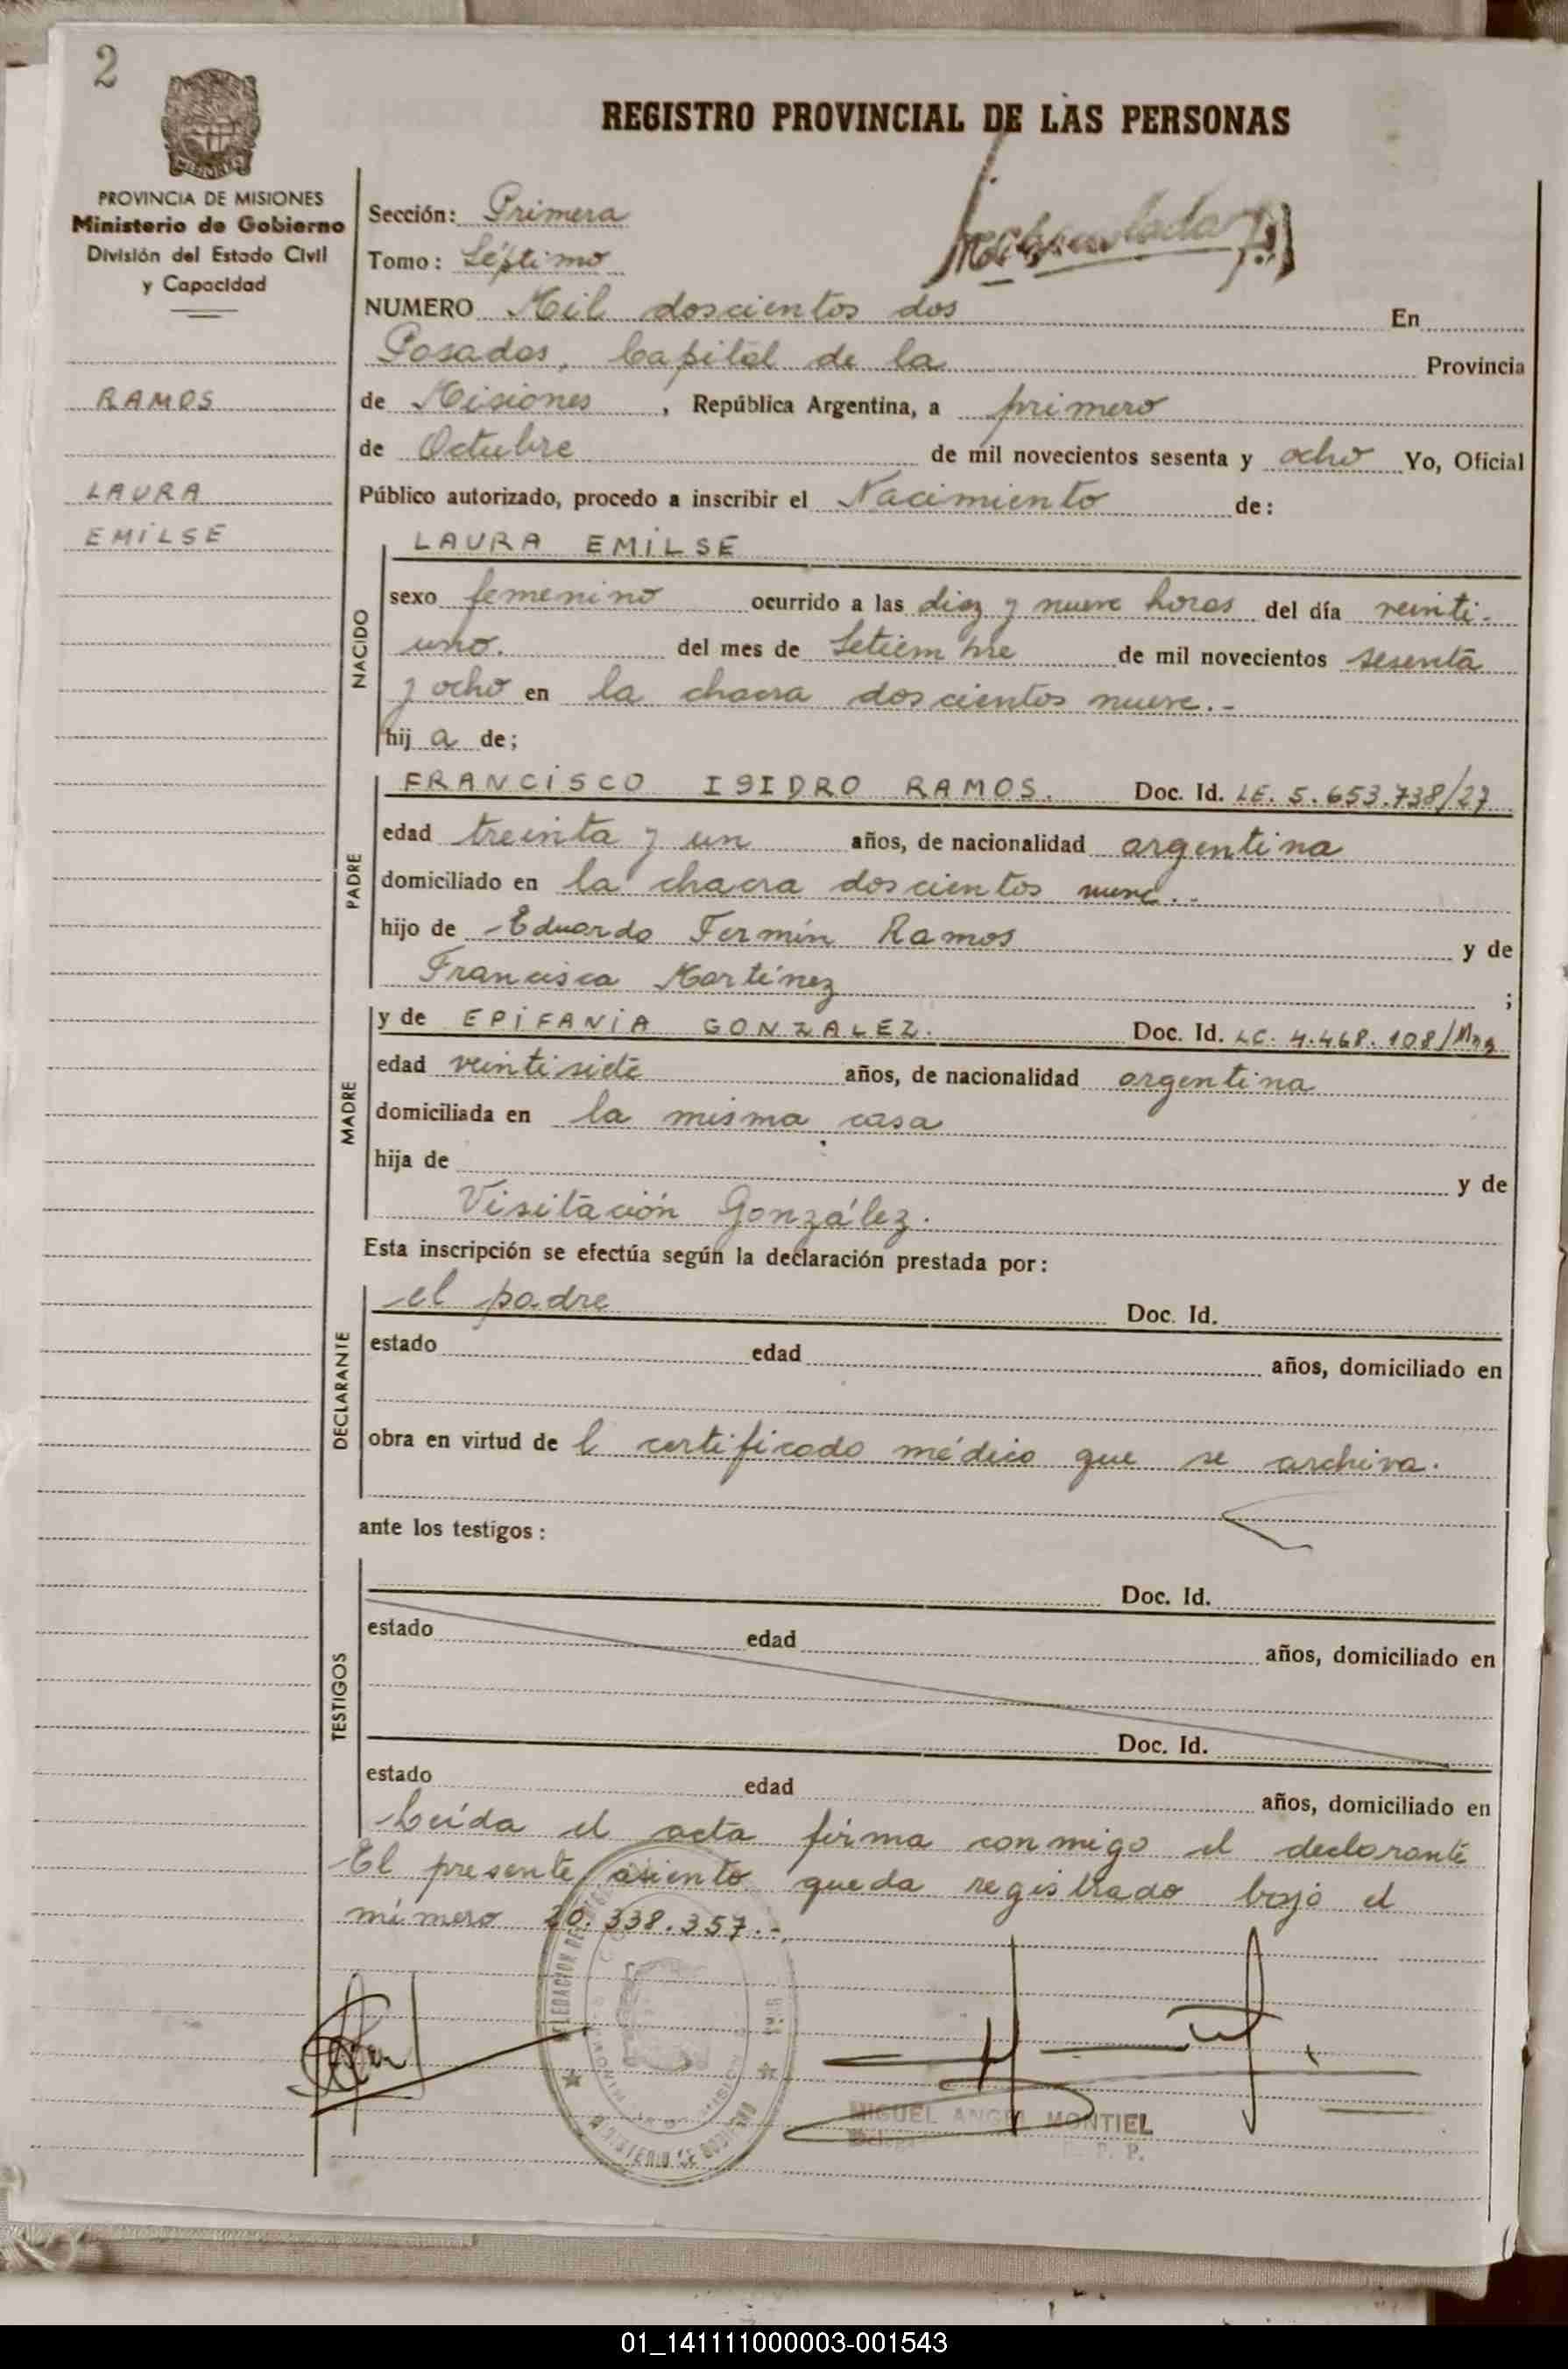 2
REGISTRO PROVINCIAL DE LAS PERSONAS
PROVINCIA DE MISIONES
Ministerio de Gobierno
División del Estado Civil
y Capacidad
RAMOS
LAURA
EMILSE
Sección: Primera
Tomo: Séptimo
NUMERO Mil doscientos dos En
Posadas, Capital de la Provincia
de Misiones, República Argentina, a primero
de Octubre de mil novecientos sesenta y ocho Yo, Oficial
Público autorizado, procedo a inscribir el Nacimiento de:
NACIDO
LAURA EMILSE
sexo femenino ocurrido a las diez y nueve horas del día veinti-
uno. del mes de Setiembre de mil novecientos sesenta
y ocho en la chacra doscientos nueve.-
hij a de;
PADRE
FRANCISCO ISIDRO RAMOS. Doc. Id. LE. 5.653.738/27
edad treinta y un años, de nacionalidad argentina
domiciliado en la chacra doscientos nueve.-
hijo de Eduardo Fermín Ramos y de
Francisca Martínez ;
MADRE
y de EPIFANIA GONZALEZ. Doc. Id. LC. 4.468.108/Mns
edad veintisiete años, de nacionalidad argentina
domiciliada en la misma casa
hija de y de
Visitación González.
Esta inscripción se efectúa según la declaración prestada por:
DECLARANTE
el padre Doc. Id.
estado edad años, domiciliado en
obra en virtud de l certificado médico que se archiva.
ante los testigos:
TESTIGOS
Doc. Id.
estado edad años, domiciliado en
Doc. Id.
estado edad años, domiciliado en
Leída el acta firma conmigo el declarante
El presente asiento queda registrado bajo el
número 20.338.357.-
MIGUEL ANGEL MONTIEL
01_141111000003-001543